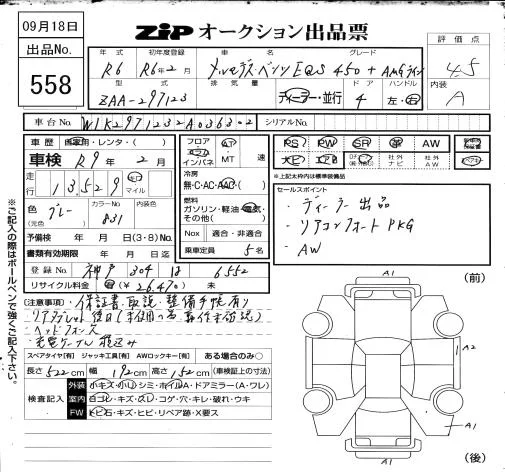 09月18日
出品No.
558
ZIP オークション出品票
年式 初年度登録 車名 グレード
R6 R6年2月 メルセデス・ベンツ EQS 450+ AMGライン
型式 排気量 ドア ハンドル
ZAA-297123 ディーラー・並行 4 左・右
評価点
4.5
内装
A
車台No. W1K2971232A036302 シリアルNo.
車歴 自家用・レンタ・( )
車検 R9年2月
走行 13,529 km マイル
色 グレー カラーNo. 831
(元色)
予備検 年 月 日(3・8)No.
書類有効期限 年 月 日迄
登録No. 神戸 304 は 6552
リサイクル料金 有(¥26,470) 未
フロア AT
コラム
インパネ MT 速
冷房
無・C・AC・AAC・( )
燃料
ガソリン・軽油・電気・
その他( )
Nox 適合・非適合
乗車定員 5名
PS PW SR 革 AW
ナビ エアB 社外ナビ 社外AW
※上記太枠内は標準装備品
セールスポイント
・ディーラー出品
・リアコンフォートPKG
・AW
※ご記入の際はボールペンで強くご記入下さい。
(注意事項)・保証書・取説・整備手帳有り
・ヘッドフォンズ
・充電ケーブル積込み
スペアタイヤ[有] ジャッキ工具[有] AWロックキー[有] ある場合のみ○
長さ 522cm 幅 192cm 高さ 152cm (車検証上の寸法)
検査記入
外装 小キズ・小凹・シミ・ホイルA・ドアミラー(A・ワレ)
室内 ヨゴレ・キズ・スレ・コゲ・穴・キレ・破れ・ウキ
FW トビ石・キズ・ヒビ・リペア跡・X要ス
A1
(前)
A1
A2
A1
(後)